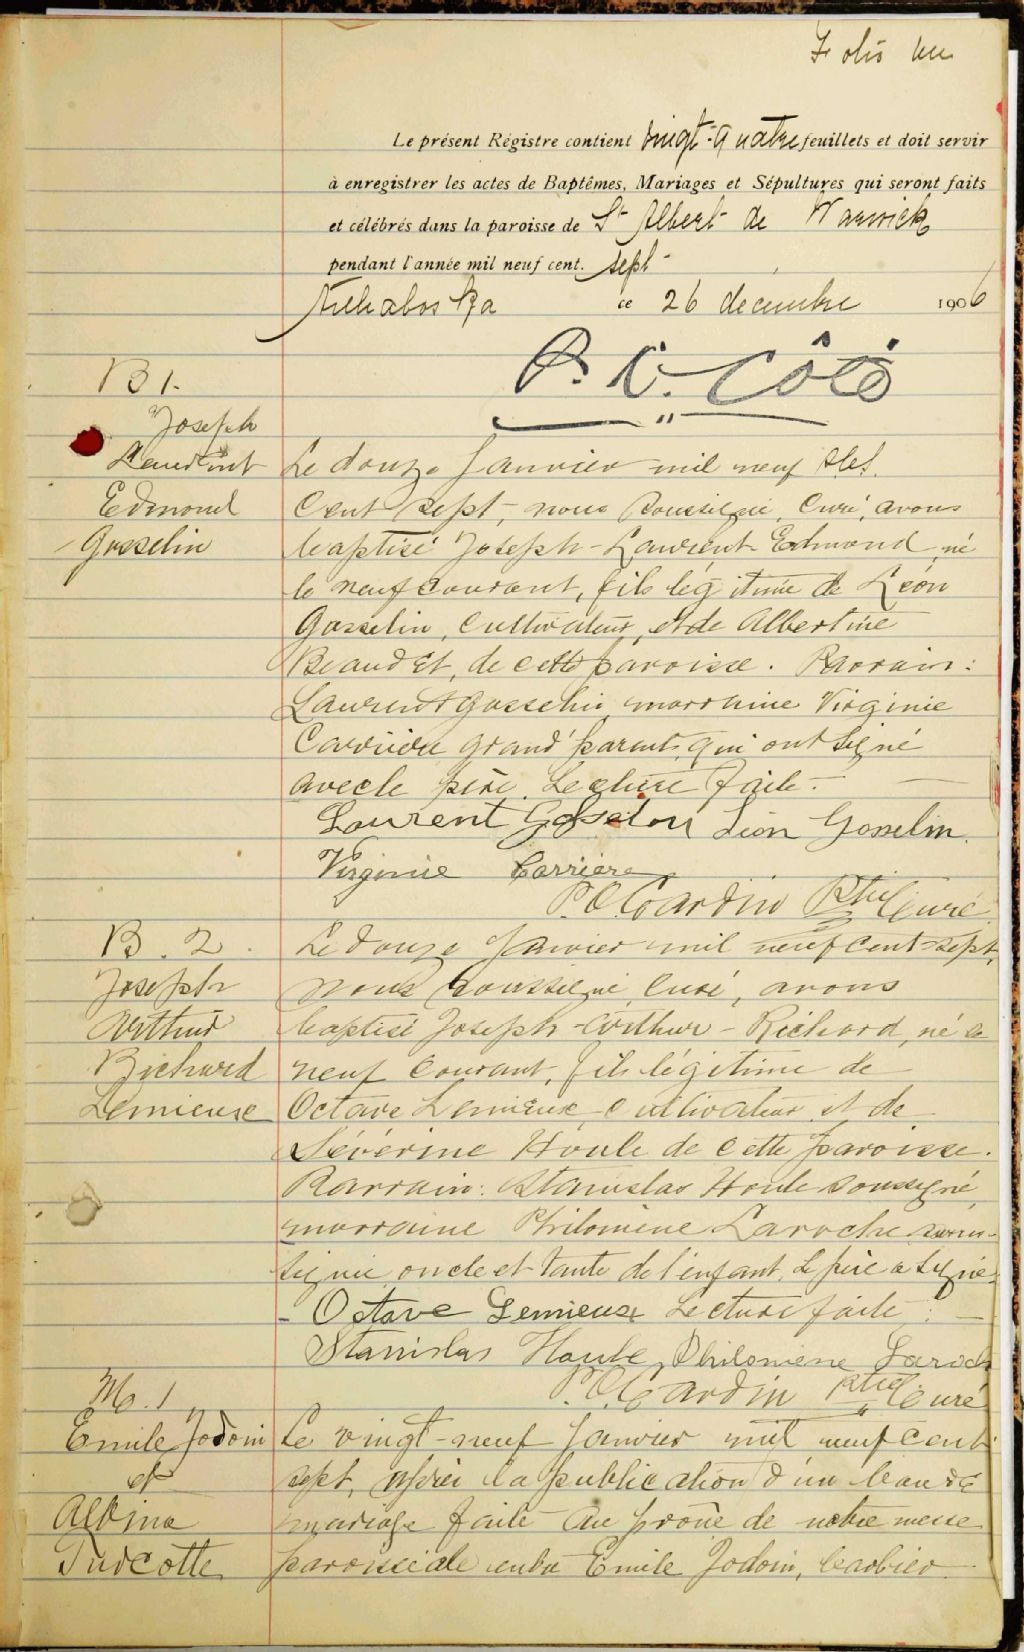 Folio un
Le présent Régistre contient vingt-quatre feuillets et doit servir
à enregistrer les actes de Baptêmes, Mariages et Sépultures qui seront faits
et célébrés dans la paroisse de St Albert de Warwick
pendant l'année mil neuf cent. sept
Arthabaska ce 26 décembre 1906
P. C. Côté
B 1.
Joseph
Laurent
Edmond
Gosselin
Le douze Janvier mil neuf
Cent sept, nous soussigné, Curé, avons
baptisé Joseph-Laurent Edmond, né
le neuf courant, fils légitime de Léon
Gosselin, Cultivateur, et de Albertine
Beaudet, de cette paroisse. Parrain:
Laurent Gosselin marraine Virginie
Carrière grand'parents, qui ont signé
avec le père. Lecture faite.
Laurent Gosselin Léon Gosselin
Virginie Carriere
P. O. Gardin Ptre Curé
B. 2.
Joseph
Arthur
Richard
Lemieux
Le douze Janvier mil neuf cent sept,
nous soussigné, Curé, avons
baptisé Joseph-Arthur-Richard, né le
neuf courant, fils légitime de
Octave Lemieux, cultivateur et de
Séverine Houle de cette paroisse.
Parrain: Stanislas Houle soussigné,
marraine Philomène Laroche sous-
signée, oncle et tante de l'enfant. Le père a signé.
- Octave Lemieux Lecture faite.
Stanislas Houle Philomene Laroch
P. O. Gardin Ptre Curé
M. 1
Emile Jodoin
et
Albina
Turcotte
Le vingt-neuf Janvier mil neuf cent
sept, après la publication d'un ban de
mariage faite au prône de notre messe
paroissiale entre Emile Jodoin, barbier